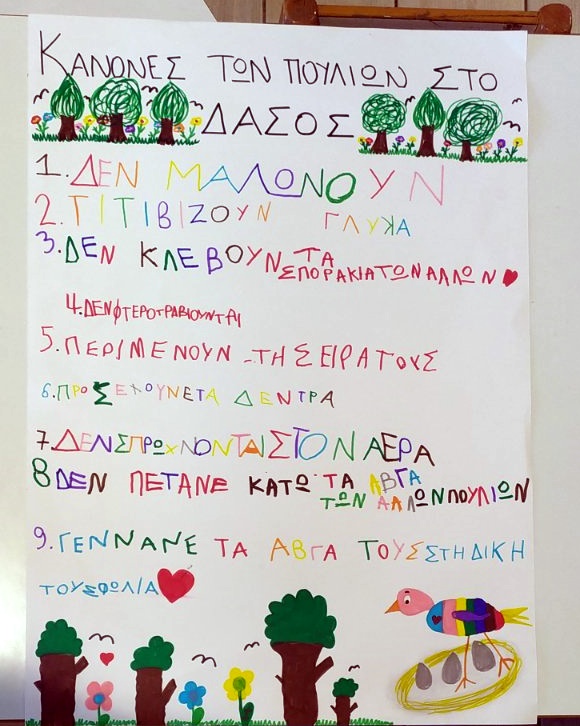 ΚΑΝΟΝΕΣ ΤΩΝ ΠΟΥΛΙΩΝ ΣΤΟ
ΔΑΣΟΣ
1. ΔΕΝ ΜΑΛΩΝΟΥΝ
2. ΤΙΤΙΒΙΖΟΥΝ ΓΛΥΚΑ
3. ΔΕΝ ΚΛΕΒΟΥΝ ΤΑ
ΣΠΟΡΑΚΙΑ ΤΩΝ ΑΛΛΩΝ
4. ΔΕΝ ΦΤΕΡΟΤΡΑΒΙΟΥΝΤΑΙ
5. ΠΕΡΙΜΕΝΟΥΝ -ΤΗ ΣΕΙΡΑ ΤΟΥΣ
6. ΠΡΟΣΕΧΟΥΝΕ ΤΑ ΔΕΝΤΡΑ
7. ΔΕΝ ΣΠΡΩΧΝΟΝΤΑΙ ΣΤΟΝ ΑΕΡΑ
8 ΔΕΝ ΠΕΤΑΝΕ ΚΑΤΩ ΤΑ ΑΒΓΑ
ΤΩΝ ΑΛΛΩΝ ΠΟΥΛΙΩΝ
9. ΓΕΝΝΑΝΕ ΤΑ ΑΒΓΑ ΤΟΥΣ ΣΤΗ ΔΙΚΗ
ΤΟΥΣ ΦΩΛΙΑ